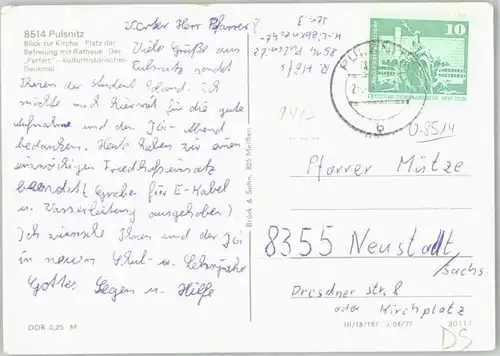 8514 Pulsnitz
Blick zur Kirche Platz der
Befreiung mit Rathaus Der
„Perfert" – kulturhistorisches
Denkmal
Werter Herr Pfarrer!
Viele Grüße aus
Pulsnitz sendet
Ihnen der Student Roland. Ich
möchte mich hiermit für die gute
Aufnahme und den JG-Abend
bedanken. Heute haben wir einen
Friedhofseinsatz
beendet (Graben für E-Kabel
u. Wasserleitung ausgehoben)
Ich wünsche Ihnen und der JG
im neuen Schul- u. Lehrjahr
Gottes Segen u. Hilfe
DDR 0,25 M
Brück & Sohn, 825 Meißen
8514 Pulsnitz
PULSNITZ
b
10
DEUTSCHE DEMOKRATISCHE REPUBLIK
0-8514
Pfarrer Mütze
8355 Neustadt
/Sachs
Dresdner Str. 8
oder Kirchplatz
III/18/197 J 04/77 30117
DS